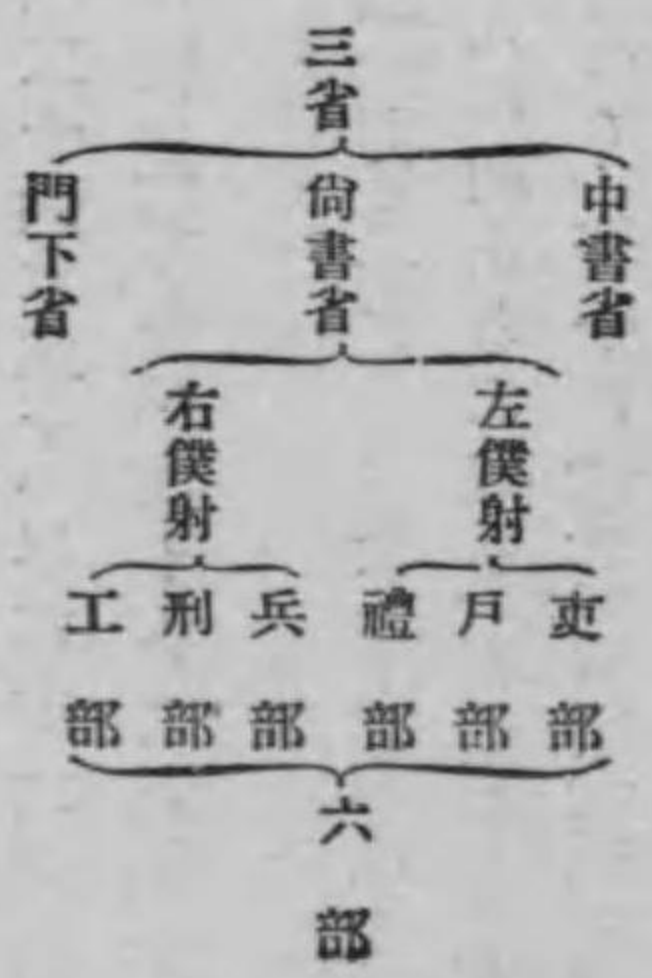 三省
中書省
尙書省
門下省
左僕射
右僕射
吏部
戶部
禮部
兵部
刑部
工部
六部